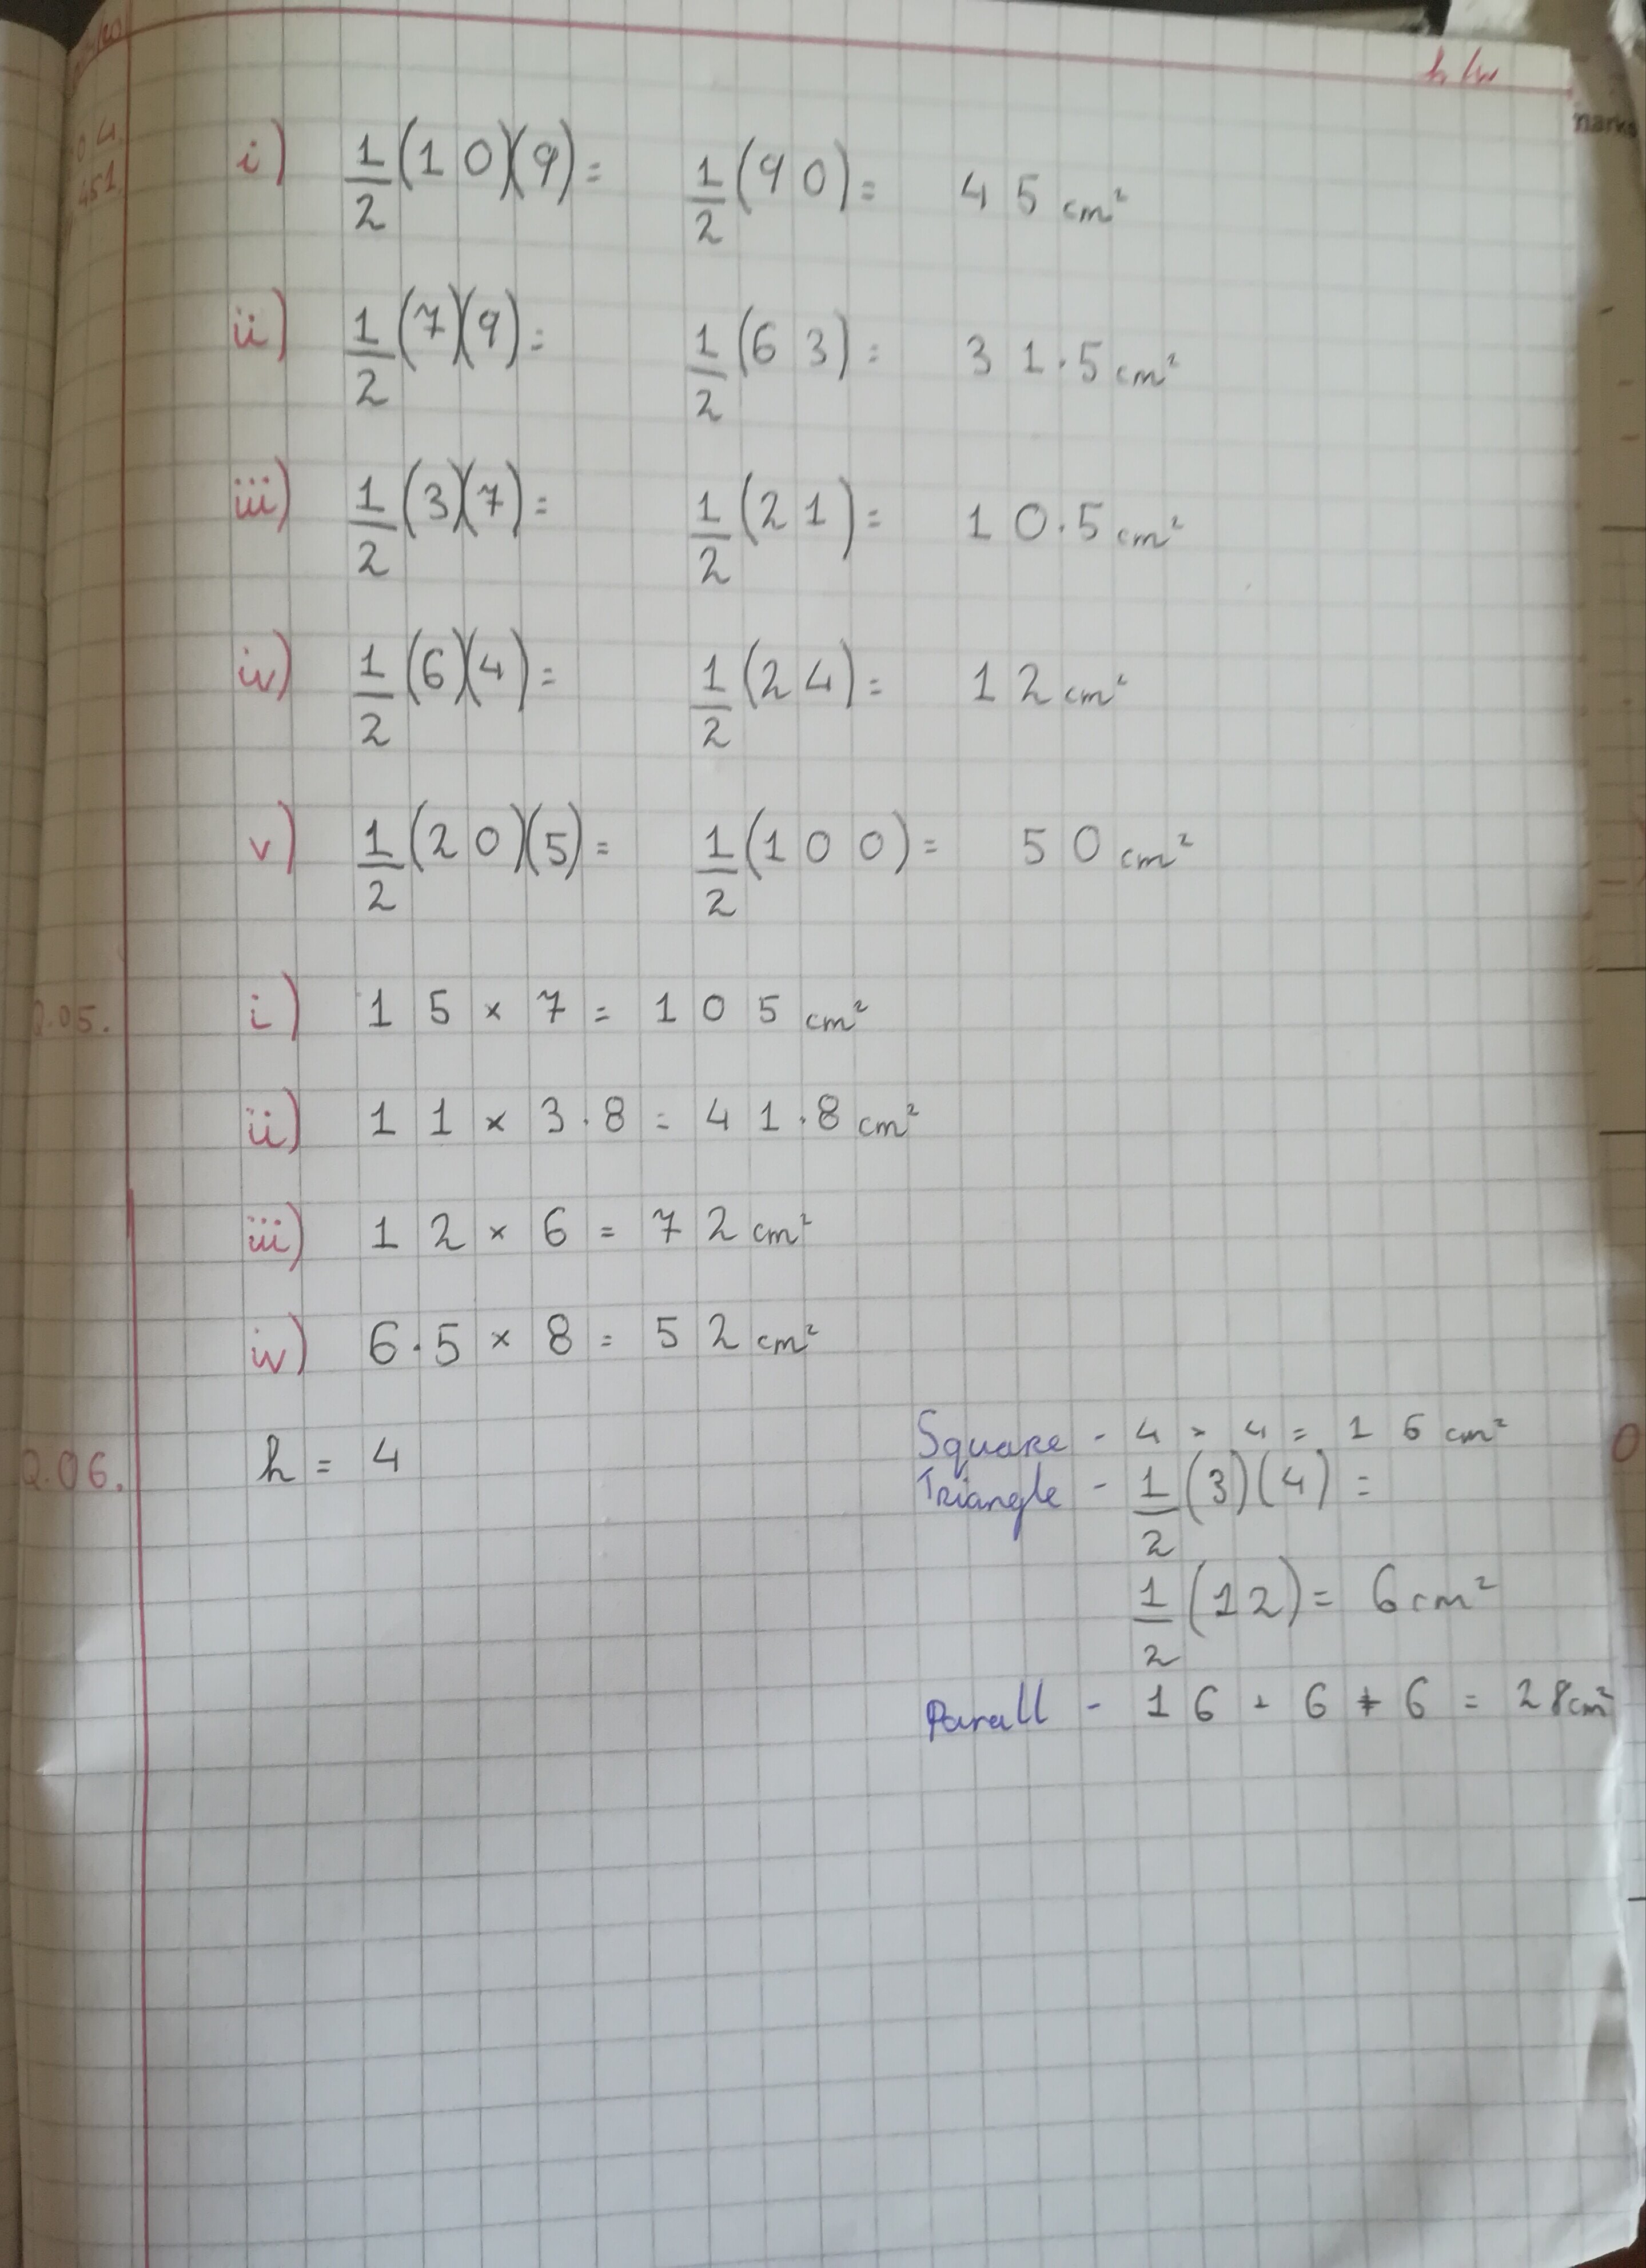 h/w
04.
451.
i) 1/2 (10)(9) = 1/2 (90) = 45 cm²
ii) 1/2 (7)(9) = 1/2 (63) = 31.5 cm²
iii) 1/2 (3)(7) = 1/2 (21) = 10.5 cm²
iv) 1/2 (6)(4) = 1/2 (24) = 12 cm²
v) 1/2 (20)(5) = 1/2 (100) = 50 cm²
Q.05. i) 15 × 7 = 105 cm²
ii) 11 × 3.8 = 41.8 cm²
iii) 12 × 6 = 72 cm²
iv) 6.5 × 8 = 52 cm²
Q.06. h = 4
Square - 4 × 4 = 16 cm²
Triangle - 1/2 (3)(4) =
1/2 (12) = 6 cm²
Parall - 16 + 6 + 6 = 28 cm²